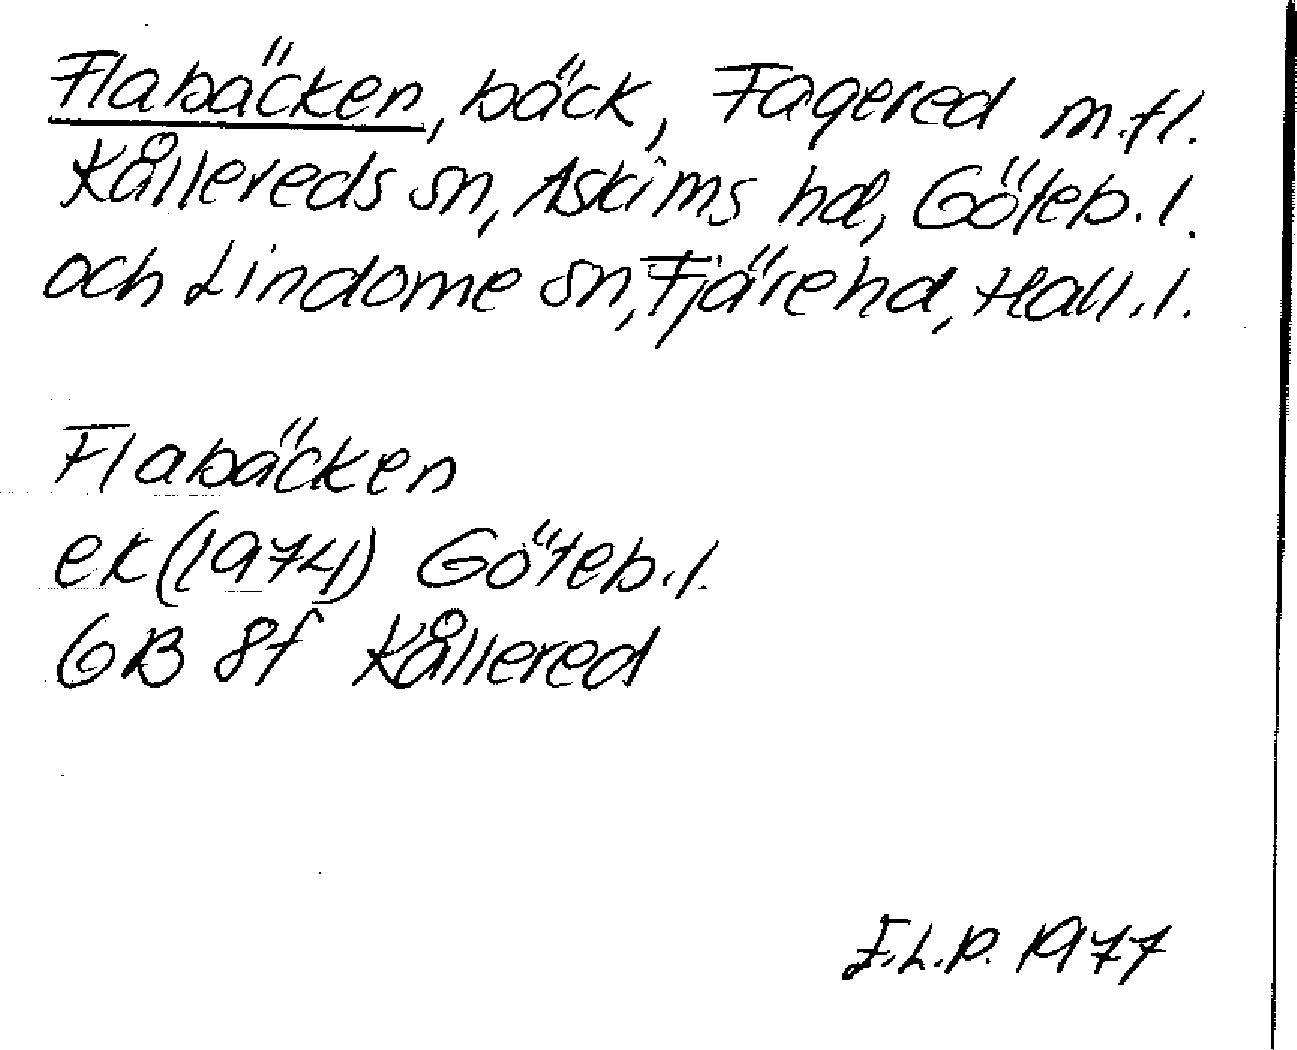 Flabäcken, bäck, Fagered m.fl.
Kållereds sn, Askims hd, Göteb.l.
och Lindome sn, Fjäre hd, Hall.l.
Flabäcken
ek (1974) Göteb.l.
GB 8f Kållered
I.L.P. 1977